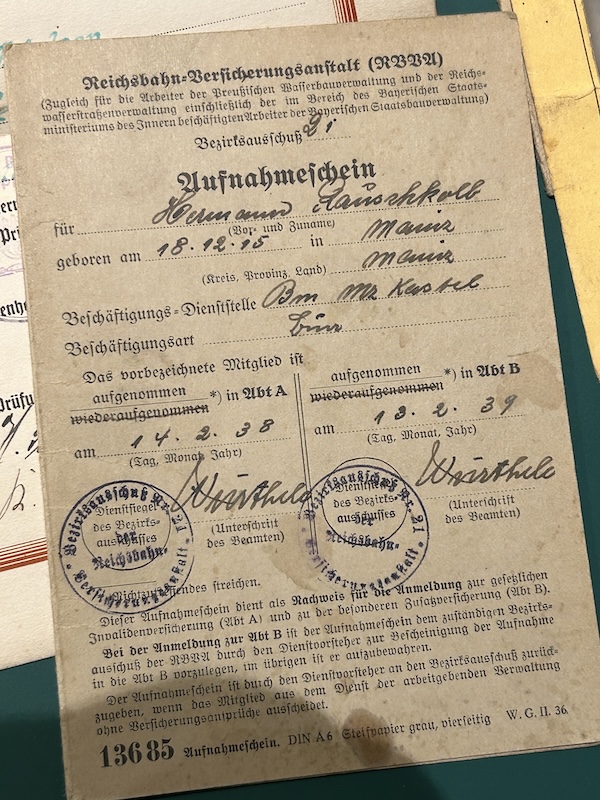 Reichsbahn-Versicherungsanstalt (RBVA)
(Zugleich für die Arbeiter der Preußischen Wasserbauverwaltung und der Reichs-
wasserstraßenverwaltung einschließlich der im Bereich des Bayerischen Staats-
ministeriums des Innern beschäftigten Arbeiter der Bayerischen Staatsbauverwaltung)
Bezirksausschuß 21
Aufnahmeschein
für Hermann Rauschkolb
(Vor- und Zuname)
geboren am 18.12.15 in Mainz
(Kreis, Provinz, Land) Mainz
Beschäftigungs-Dienststelle Bm Mz Kastel
Beschäftigungsart
Das vorbezeichnete Mitglied ist
aufgenommen
wiederaufgenommen *) in Abt A
am 14.2.38
(Tag, Monat, Jahr)
Dienstsiegel
des Bezirks-
ausschusses
der
Reichsbahn-
(Unterschrift
des Beamten)
Bezirksausschuß Nr. 21
Versicherungsanstalt
aufgenommen
wiederaufgenommen *) in Abt B
am 13.2.39
(Tag, Monat, Jahr)
Dienstsiegel
des Bezirks-
ausschusses
der
Reichsbahn-
(Unterschrift
des Beamten)
Bezirksausschuß Nr. 21
Versicherungsanstalt
Nichtzutreffendes streichen.
Dieser Aufnahmeschein dient als Nachweis für die Anmeldung zur gesetzlichen
Invalidenversicherung (Abt A) und zu der besonderen Zusatzversicherung (Abt B).
Bei der Anmeldung zur Abt B ist der Aufnahmeschein dem zuständigen Bezirks-
ausschuß der RBVA durch den Dienstvorsteher zur Bescheinigung der Aufnahme
in die Abt B vorzulegen, im übrigen ist er aufzubewahren.
Der Aufnahmeschein ist durch den Dienstvorsteher an den Bezirksausschuß zurück-
zugeben, wenn das Mitglied aus dem Dienst der arbeitgebenden Verwaltung
ohne Versicherungsansprüche ausscheidet.
13685 Aufnahmeschein. DIN A6 Steifpapier grau, vierseitig W. G. II. 36.